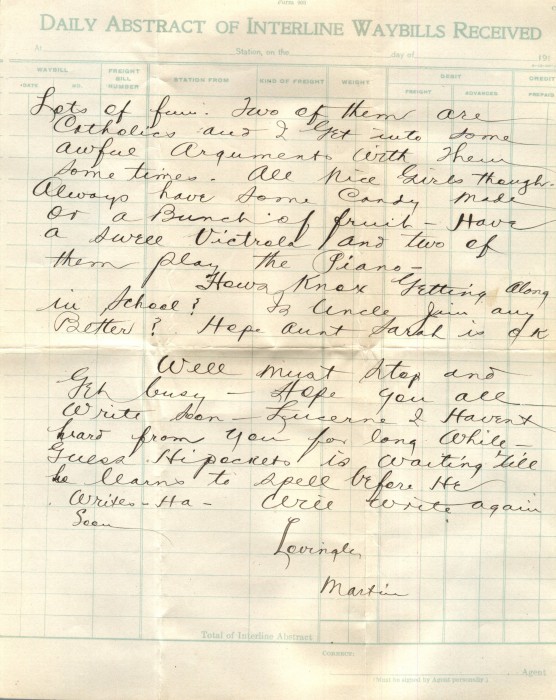 Form 89
DAILY ABSTRACT OF INTERLINE WAYBILLS RECEIVED
At Station, on the day of 191
WAYBILL FREIGHT BILL NUMBER STATION FROM KIND OF FREIGHT WEIGHT DEBIT CREDIT
DATE NO. FREIGHT ADVANCED PREPAID
Lots of fun. Two of them are
Catholics and I Get into some
awful Arguments with Them
some times. All Nice Girls though.
Always have some Candy Made
or a Bunch of fruit - Have
a swell Victrola and two of
them play the Piano -
Hows Knox Getting Along
in School? Is Uncle Jim any
Better? Hope Aunt Sarah is OK
Well must stop and
Get busy - Hope you all
write soon - Lucerne I Havent
heard from you for long While -
Guess Hipockets is waiting till
he learns to spell before He
Writes - Ha - Will Write again
Soon
Lovingly
Martin
Total of Interline Abstract
CORRECT:
Agent
(Must be signed by Agent personally)